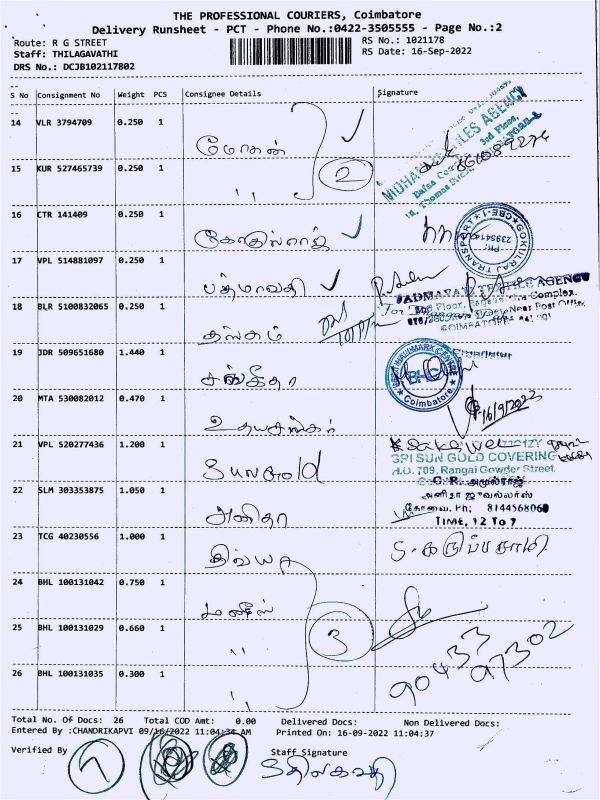 THE PROFESSIONAL COURIERS, Coimbatore
Delivery Runsheet - PCT - Phone No.:0422-3505555 - Page No.:2
Route: R G STREET
RS No.: 1021178
Staff: THILAGAVATHI
RS Date: 16-Sep-2022
DRS No.: DCJB102117802
S No Consignment No Weight PCS Consignee Details Signature
14 VLR 3794709 0.250 1 மோகன்
AGENCY
3rd Floor,
15 KUR 527465739 0.250 1 ,, 2
16 CTR 141409 0.250 1 கோகுல்ராஜ்
GOKULRAJ TRANSPORT CBE-1
17 VPL 514881097 0.250 1 பத்மாவதி
PADMAVATI TEXTILE AGENCY
Near Post Office
COIMBATORE
18 BLR 5100832065 0.250 1 தங்கம்
19 JDR 509651680 1.440 1 சங்கீதா
HALLMARK CENTRE
BHC
Coimbatore
20 MTA 530082012 0.470 1 உதயசங்கர்
16/9/2022
21 VPL 520277436 1.200 1
SRI SUN GOLD COVERING
H.D. 709, Rangai Gowder Street,
22 SLM 303353875 1.050 1 அனிதா
G. R. அமுல்ராஜ்
அனிதா ஜுவல்லர்ஸ்
கோவை, Ph: 8144568060
TIME, 12 To 7
23 TCG 40230556 1.000 1 திவ்யா
S. கருப்பசாமி
24 BHL 100131042 0.750 1
25 BHL 100131029 0.660 1 ,, 3
90433
97302
26 BHL 100131035 0.300 1 ,,
Total No. Of Docs: 26 Total COD Amt: 0.00 Delivered Docs: Non Delivered Docs:
Entered By :CHANDRIKAPVI 09/16/2022 11:04:34 AM Printed On: 16-09-2022 11:04:37
Verified By
Staff Signature
திலகவதி